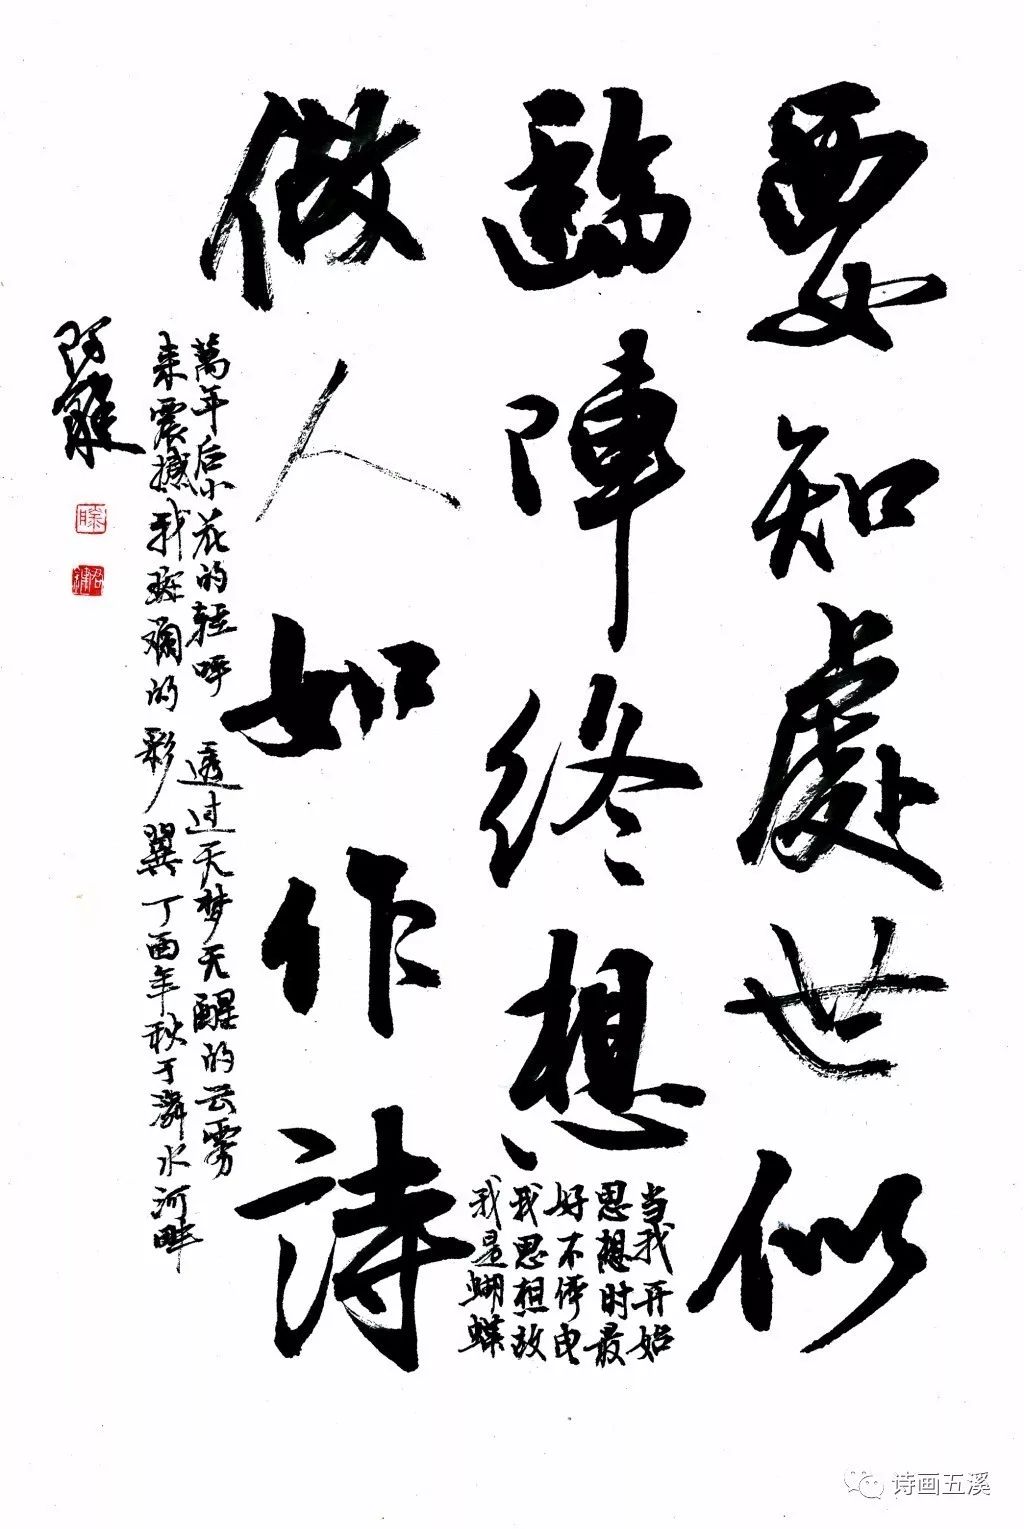 要知處世似
臨陣終想
当我开始
思想时最
好不停电
我思想故
我是蝴蝶
做人如作詩
萬年后小花的轻呼 透过无梦无醒的云雾
来震撼我斑斓的彩翼 丁酉年秋于㵲水河畔
阿
诗画五溪